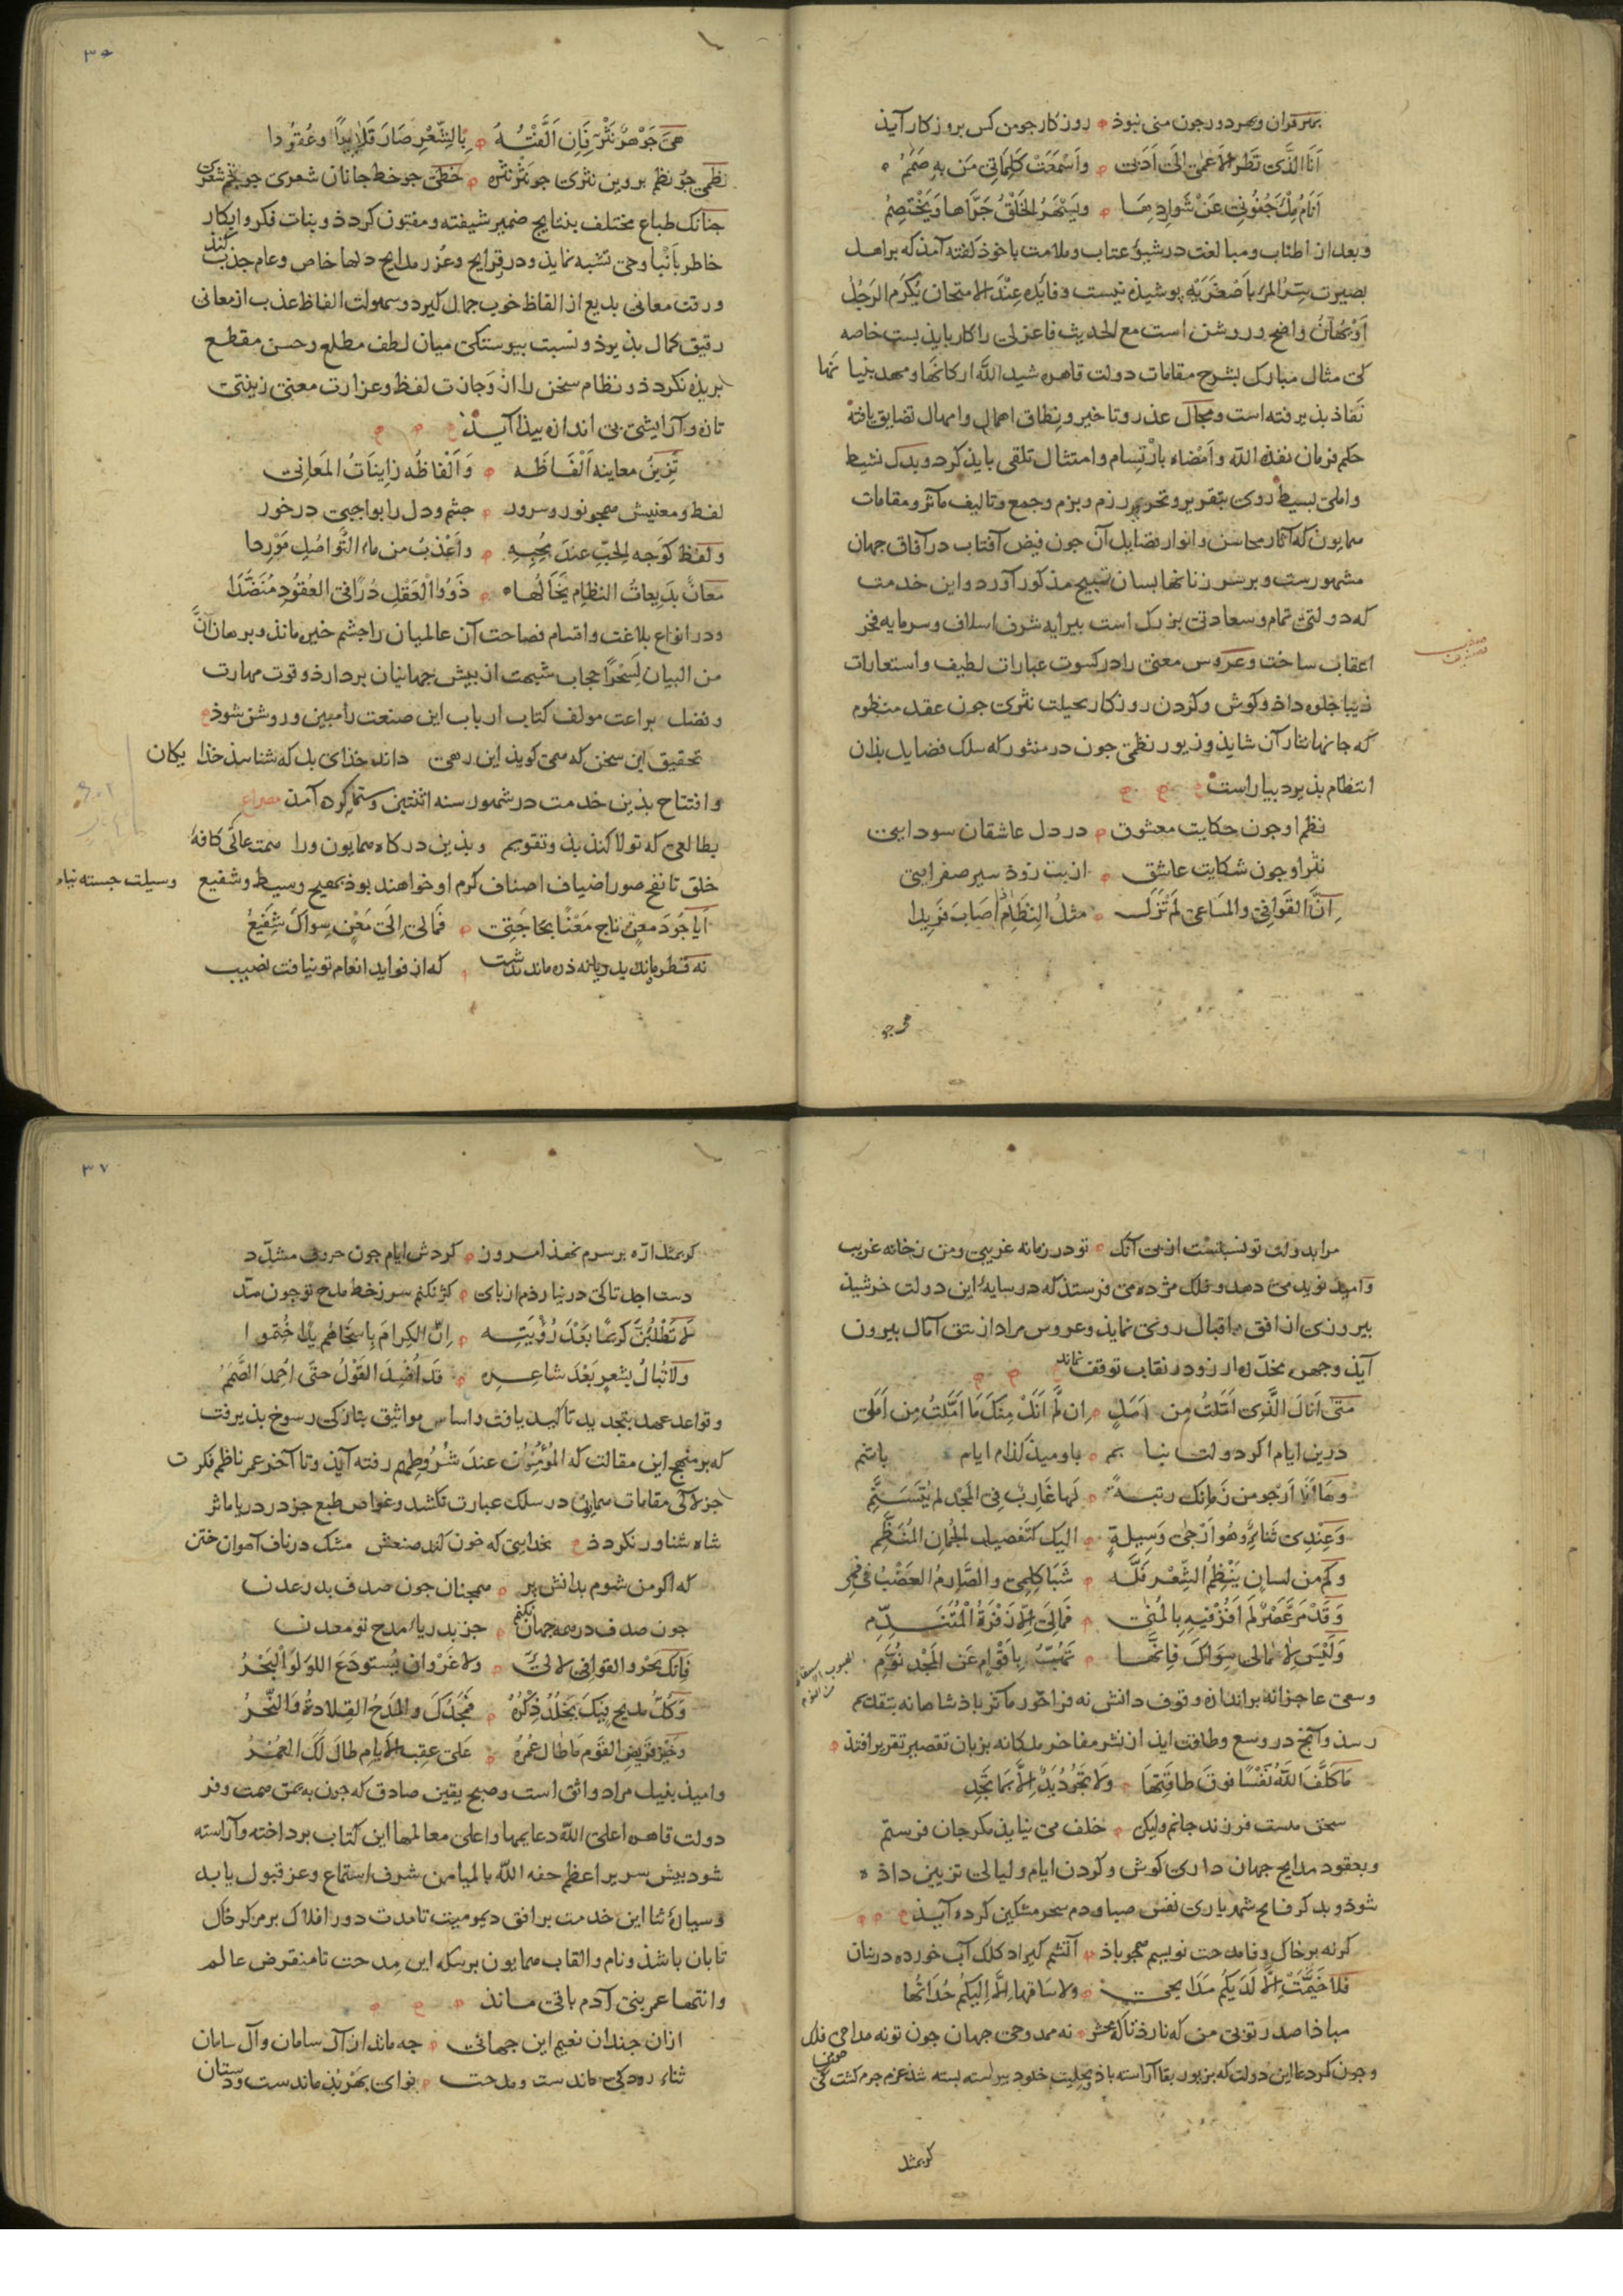 بهتر قران و بهر دور جون منی نبوذ روزکار جو من کس بروزکار آیذ
اَنَا الَّذی نَظَر الاَعمٰی اِلیٰ اَدَبی وَاَسْمَعَتْ کَلِمَاتِی مَن بِهِ صَمَمُ
اَنَامُ مِلْءَ جُفُونی عَنْ شَوارِدِهَا وَیَسْهَرُ الخَلْقُ جَرَّاها وَیَخْتَصِمُ
و بعد از اطناب و مبالغت در شیوهٔ عتاب و ملامت با خوذ کفته آمذ که بر اهل
بصیرت سِرّ المَرْءُ بِاَصْغَرَیْهِ پوشیذه نیست و فایدهٔ عِنْدَ الامتحان یُکْرَم الرَجُلُ
اَوْیُهَانُ واضح و روشن است مع الحدیث فاعزلی را کار بایذ بست خاصه
کی مثال مبارک بشرح مقامات دولت قاهره شید اللّٰه ارکانَها و مهد بنیانها
نَفاذ بذیرفته است و مجال عذر و تاخیر و نِطاق اهمال و امهال تضایق یافته
حکم فرمان نفذه اللّٰه وَ اَمْضاه باِرْتِسام و امتثال تلقی بایذ کرد و بدل نشیط
و املی بسیط روی بتقریر و تحریر رزم و بزم و جمع و تالیف مآثر و مقامات
همایون که آثار محاسن و انوار فضایل آن جون فیض آفتاب در آفاق جهان
مشهورست و بر سر زبانها بسان تسبیح مذکور آورد و این خدمت
که دولتی تمام و سعادتی بزرک است بیرایه شرف اسلاف و سرمایه فخر
اعقاب ساخت و عروس معنی را در کسوت عبارات لطیف و استعارات
زیبا جلوه داذ و کوش و کردن روزکار بحیلت نثری جون عقد منظوم
که جانها نثار آن شایذ و زیور نظمی جون در منثور که سلک فضایل بذان
انتظام بذیرد بیاراست
نظم او جون حکایت معشوق در دل عاشقان سودایی
نثر او جون شکایت عاشق از بت زوذ سیر صفرایی
اِنَّ القَوافِیَ والمَساعِیَ لَمْ تَزَلْ مثلُ النِظَامِ اَصَابَ فَرِیدا
هی جو
هِیَ جَوْهَرٌ نَثْرٌ فَاِن اَلَّفْتَهُ بِالشِّعْرِ صَارَ قَلَایِدًا وعُقُودا
نظمی جو نظم بروین نثری جو نَثْر نثره خطی جو خط جانان شعری جو نجم شعری
جنانک طباع مختلف بنتایج ضمیر شیفته و مفتون کردذ و بنات فکر و ابکار
خاطر باَنْبا وحی تشبه نمایذ و درقرایح و غُرَر مدایح دلها خاص و عام جذب کند
و رقت معانی بدیع از الفاظ خوب جمال کیرد و سهولت الفاظ عذب از معانی
رقیق کمال بذیرذ و نسبت بیوستکی میان لطف مطلع و حسن مقطع
بریذه نکردذ و نظام سخن را از وَجازت لفظ و غزارت معنی زینتی
تازه و آرایشی بی اندازه بیذا آیذ
تُزِینُ معاینه اَلْفَاظَه وَاَلْفاظُه زاینَاتُ المَعَانِی
لفظ و معنیش همجو نور و سرور جشم و دل را بواجبی در خور
ولَفظ کوَجه الحبّ عندَ مُحِبِهِ وأعْذبُ من ماء التَّواصُل مَوْرِدا
مَعانٌ بَدِیعاتُ النظام یَخَالُهاه ذَوُوا العَقْلِ دُرًا فی العُقُودِ مُنَضَّدَا
و در انواع بلاغت و اقسام فصاحت آن عالمیان را جشم خیره مانذ و برهان اَنَّ
من البیان لَسِحْرًا حجاب شبهت از بیش جهانیان بردارذ و قوت مهارت
و فضل براعت مولف کتاب ارباب این صنعت را مبین و روشن شوذ
تحقیق این سخن که همی کویذ این رهی داند خذای بل که شناسذ خذایکان
و افتتاح بذین خدمت در شهور سنه اثنتین و ستمایه کرده آمذ مصراع
بطالعی که تولا کنذ بذو تقویم و بذین درکاه همایون ورا همت عالی کافهٔ
خلق تا نفخ صور اضیاف اصناف کرم او خواهند بوذ بهیج وسیط و شفیع وسیلت جسته نیامد
اَیَا جُودَ مَعْنٍ ناجِ مَعْنًا بحَاجَتِی فَمَالی اِلَی مَعْنٍ سِواکَ شَفِیعُ
نه قطره ماند بدریا نه ذره ماند بدشت که از فواید انعام تو نیافت نصیب
مرا بدولت تو نسبتست از بی آنک تو در زمانه غریبی و من زخانه غریب
و امیذ نویذ می دهد و فلک مژده می فرستذ که در سایهٔ این دولت خرشیذ
بیروزی از افق اقبال روی نمایذ و عروس مراد از تتق آمال بیرون
آیذ و جهره مخدّره ارزو در نقاب توقف نماند
مَتیٰ اَنَالَ الَّذی اَمَّلْتُ مِن اَمَلٍ اِن لَّم اَنَلْ مِنکَ مَا اَمَّلْتُ مِن اَمَلی
درین ایام اکر دولت نیابم باومیذ کذام ایام باشم
وهَا اَنَا اَرْجو من زَمانِکَ رتبةً لَها غَارِبٌ فی المَجْدِ لم یُتَسَنَّمِ
وَعِنْدِی ثَناءٌ وَهُوَ اَرْجیٰ وَسِیلةٍ الیکَ کتَفصیلِ الجُمانِ المُنَظَّمِ
وکَم من لسانٍ یَنْظِمُ الشِّعْر فَلَّه شَبَا کَلِمی والصَّارِمُ العَضْبُ فی فَمی
وَقَدْ مَرَّ عَصْرٌ لَم اَفُزْ فیهِ بِالمُنیٰ فَمالِیَ اِلّا زَفْرَةُ المُتَنَدِّمِ
وَلَیْسَ لِآمالی سِوَاکَ فَاِنَّهَا تَهُبُّ بِاَقْوامٍ عَن المَجْدِ نُوَّمِ
و سعی عاجزانه بر اندازه وقوف دانش نه فراخور مآثر باذشاهانه بتقدیم
رسذ و آنج در وسع و طاقت ایذ از نشر مفاخر ملکانه بزبان تقصیر تقریر افتذ
مَا کَلَّفَ اللّٰهُ نَفْسًا فَوقَ طاقَتِها وَلَا تَجُودُ یَدٌ اِلَّا بِمَا تَجِدِ
سخن هست فرزند جانم ولیکن خلف می نیایذ مکر جان فرستم
و بعقود مدایح جهان داری کوش و کردن ایام و لیالی تزیین داذ
شوذ و بذکر فایح شهریاری نفس صبا و دم سحر مشکین کرده آیذ
کرنه بر خاک وفا مدحت نویسم همجو باذ آتشم کیراد کلک آب خورده در بنان
فَلا خَیَّمَتْ اِلَّا لَدَیْکُم مَدَایحی ولا سَاقَها اِلَّا اِلَیکُم حُدَاتُها
مباذا صدر تو بی من که نارذ تا که محشر نه ممدوحی جهان جون تو نه مداحی فلک
و جون کرد دعا این دولت که بزیور بقا آراسته باذ و بحلیت خلود بیراسته بسته شذ عزم جزم کشت کی
کربمثل
کربمثل ارّه بر سرم نهذ امروز کردش ایام جون حروف مشدّد
دست اجل تا کی در نیارذم از بای کژ نکنم سر زخط مدح تو جون مدّ
لَا تَطْلُبَنَّ کریمًا بَعْدَ رُؤْیَتِه اِنَّ الکِرامَ بِاَسْخَاهُم یَدًا خُتِموا
وَلَا تُبالِ بِشعرٍ بَعْدَ شاعِرِه قد اُفْسِدَ القَوْلُ حتّی اُحْمِدَ الصَّمَمُ
و قواعد عهد بتجدید تاکید یافت و اساس مواثیق بتازکی رسوخ بذیرفت
که بر منهج این مقالت که المُؤْمِنُون عندَ شُرُوطِهِم رفته آیذ و تا آخر عمر ناظم فکرت
جز لآلی مقامات همایون در سلک عبارت نکشد و غواص طبع جز در دریا ماثر
شاه شناور نکردذ بخدایی که خون کند صنعش مشک در ناف آهوان ختن
که اکر من شوم بدانش بر همجنان جون صدف بدر عدن
جون صدف در همه جهان نکنم جز بدریاء مدح تو معدن
فَاِنَّکَ بَحْرٌ والقوافی لآلیٌ ولا غَرْوَ اَن یُستودَعَ اللولُوَ البَحْرُ
وَکُلُّ مدیحٍ فِیکَ یَخْلُدُ ذِکْرُهُ فَمَجْدُکَ والمَدْحُ القِلادةُ وَالنَّحْرُ
وخَیْرُ قَرِیضِ القَوْمِ مَا طالَ عُمْرُهُ عَلیٰ عِقَبِ الاَیام طالَ لَکَ العُمْرُ
و امیذ بنیل مراد واثق است و صبح یقین صادق که جون به یمن همت وفر
دولت قاهره اعلی اللّٰه دعایمها و اعلی معالمها این کتاب برداخته و آراسته
شود بیش سریر اعظم حفه اللّٰه بالمیامن شرف استماع و عز قبول یابد
و سیارهٔ ثنا این خدمت بر افق دیمومیت تا مدت دور افلاک بر مرکز خاک
تابان باشذ و نام و القاب همایون بر سکه این مِدحت تا منقرض عالم
و انتهاء عمر بنی آدم باقی ماند
ازان جندان نعیم این جهانی جه ماند از آل سامان و آل سامان
ثناء رودکی ماندست و مدحت نوای بَهْربُذ ماندست و دستان